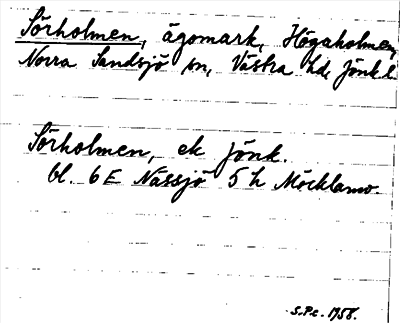 Sörholmen, ägomark, Högaholmen,
Norra Sandsjö sn, Västra hd, Jönk. l.
Sörholmen, ek Jönk.
bl. 6E Nässjö 5 h Möcklamo
S.P.c. 1958.